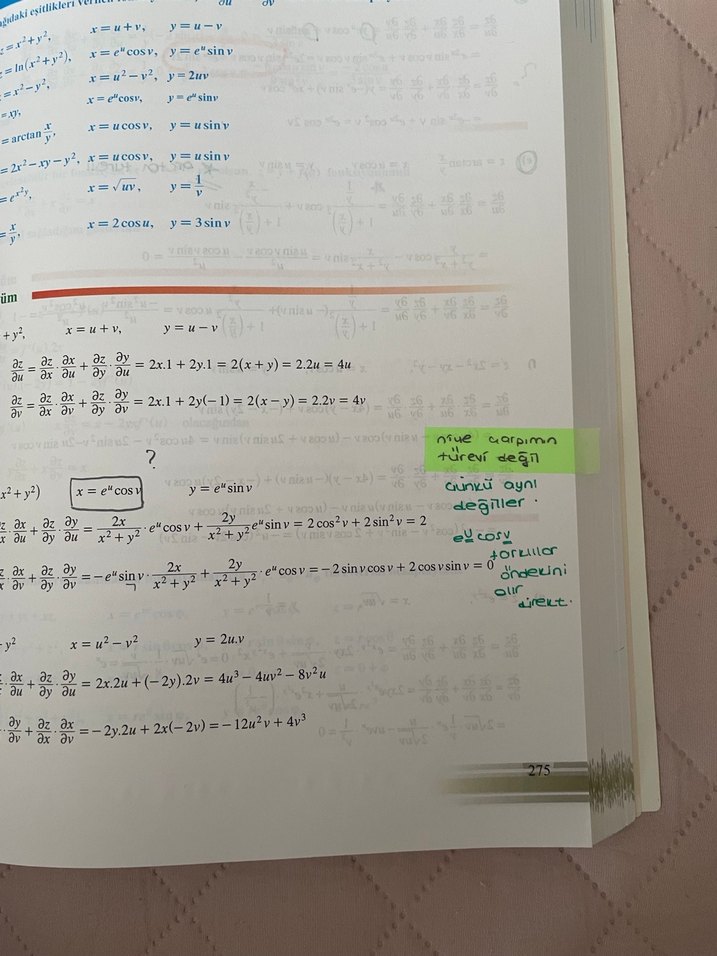 ğıdaki eşitlikleri
∂u ∂v
z = x² + y², x = u + v, y = u − v
z = ln(x² + y²), x = eᵘ cos v, y = eᵘ sin v
= x² − y², x = u² − v², y = 2uv
= xy, x = eᵘ cosv, y = eᵘ sinv
= arctan x/y, x = u cos v, y = u sin v
= 2x² − xy − y², x = u cos v, y = u sin v
= e^(x²y), x = √uv, y = 1/v
= x/y, x = 2 cos u, y = 3 sin v
üm
+ y², x = u + v, y = u − v
∂z/∂u = ∂z/∂x · ∂x/∂u + ∂z/∂y · ∂y/∂u = 2x.1 + 2y.1 = 2(x + y) = 2.2u = 4u
∂z/∂v = ∂z/∂x · ∂x/∂v + ∂z/∂y · ∂y/∂v = 2x.1 + 2y(−1) = 2(x − y) = 2.2v = 4v
niye çarpımın
türevi değil
?
x² + y²) x = eᵘ cos v y = eᵘ sin v
çünkü aynı
değiller.
∂x/∂u + ∂z/∂y · ∂y/∂u = 2x/(x² + y²) · eᵘ cos v + 2y/(x² + y²) eᵘ sin v = 2 cos² v + 2 sin² v = 2
eᵘ cosv
· ∂x/∂v + ∂z/∂y · ∂y/∂v = −eᵘ sin v · 2x/(x² + y²) + 2y/(x² + y²) · eᵘ cos v = −2 sin v cos v + 2 cos v sin v = 0
farklılar
öndekini
alır
direkt.
y² x = u² − v² y = 2u.v
· ∂x/∂u + ∂z/∂y · ∂y/∂u = 2x.2u + (−2y).2v = 4u³ − 4uv² − 8v²u
· ∂y/∂v + ∂z/∂x · ∂x/∂v = −2y.2u + 2x(−2v) = −12u²v + 4v³
275